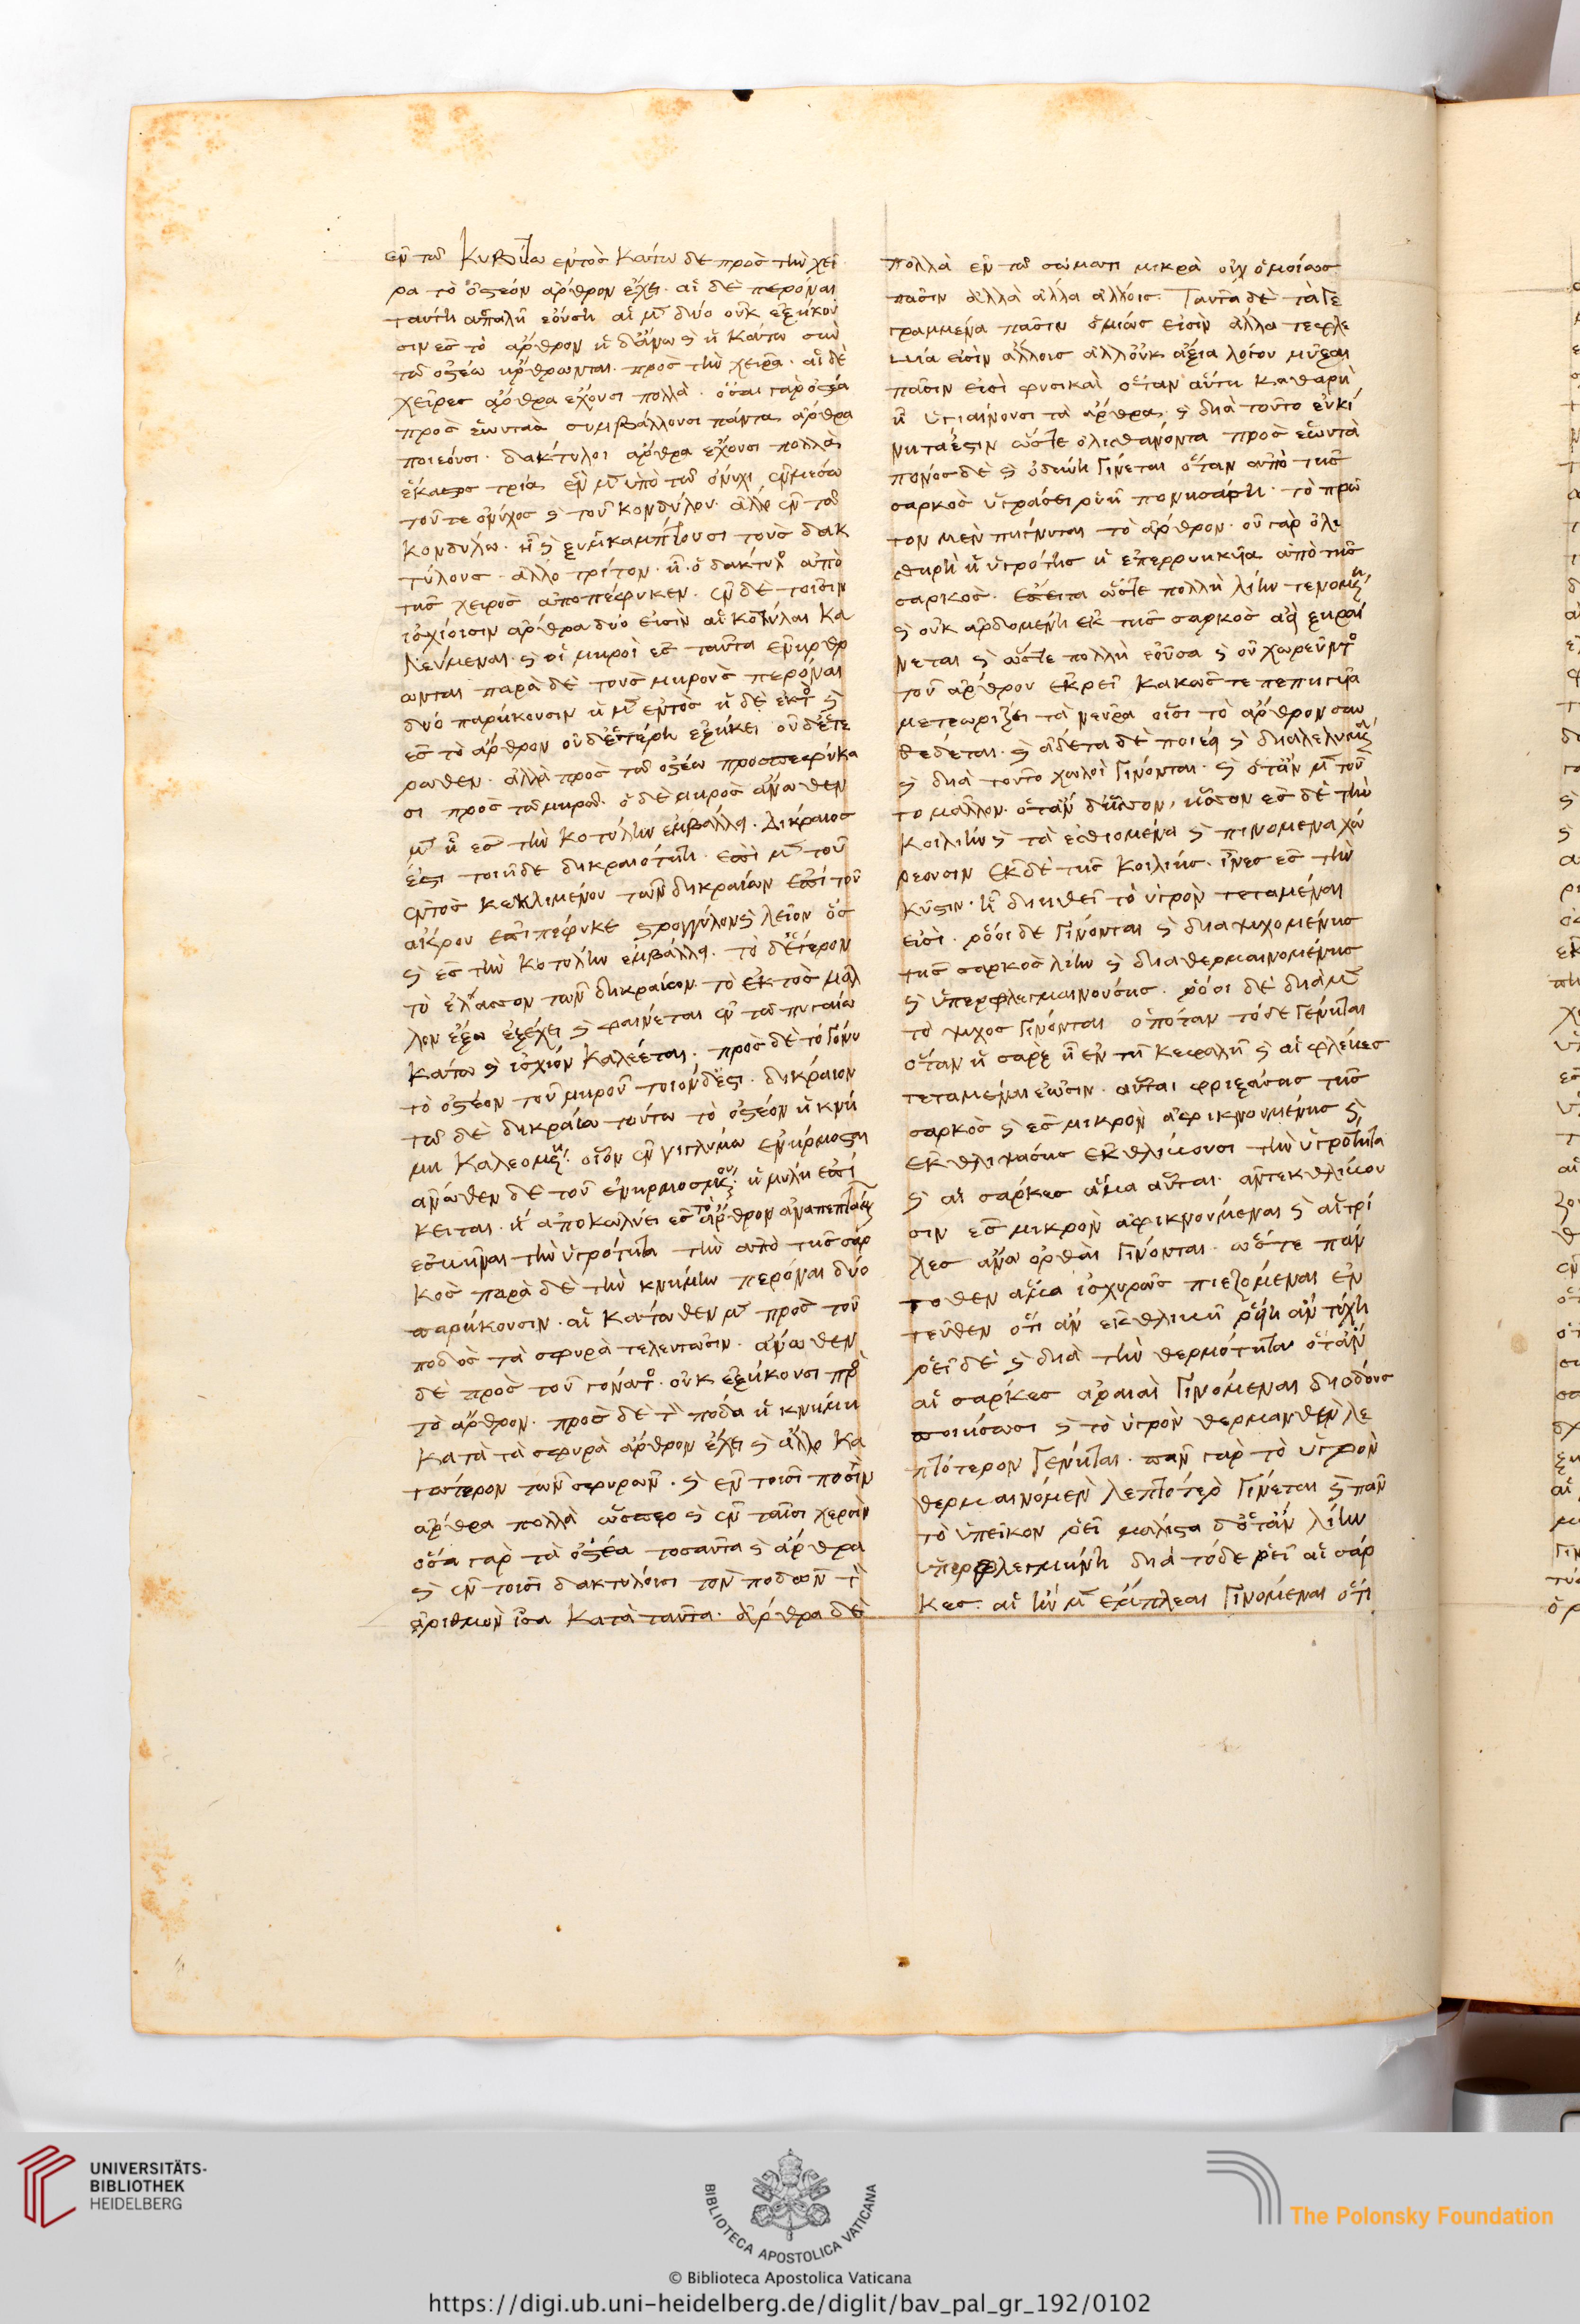 ἐν τῶ κυβίτω ἐντὸς κάτω δὲ πρὸς τὴν χεῖ
ρα τὸ ὀστέον ἄρθρον ἔχει. αἱ δὲ περόναι
ταύτη ἁπαλῆ ἐούση αἱ μὲν δύο οὐκ ἐξήκου
σιν ἐς τὸ ἄρθρον ἡ δὲ ἄνω καὶ ἡ κάτω σὺν
τῶ ὀστέω ἤρθρωνται. πρὸς τὴν χεῖρα. αἱ δὲ
χεῖρες ἄρθρα ἔχουσι πολλά. ὅσαι γὰρ ὀστέα
πρὸς ἑωυτὰ συμβάλλουσι πάντα ἄρθρα
ποιέουσι. δακτυλοι ἄρθρα ἔχουσι πολλὰ
ἕκαστος τρία ἓν μὲν ὑπὸ τῶ ὄνυχι ἐν μέσω
τοῦ τε ὄνυχος καὶ τοῦ κονδύλου. ἄλλο ἐν τῶ
κονδύλω. ἧ καὶ ξυγκάμπτουσι τοὺς δακ
τύλους. ἄλλο τρίτον. ἧ ὁ δάκτυλος ἀπὸ
τῆς χειρὸς ἀποπέφυκεν. ἐν δὲ τοῖσιν
ἰσχίοισιν ἄρθρα δύο εἰσὶν αἱ κοτύλαι κα
λεύμεναι. καὶ οἱ μηροὶ ἐς ταῦτα ἐνηρθρ
ωνται παρὰ δὲ τοὺς μηροὺς περόναι
δύο παρήκουσιν ἡ μὲν ἐντὸς ἡ δὲ ἐκτὸς καὶ
ἐς τὸ ἄρθρον οὐδετέρη ἐξήκει οὐδετέ
ρωθεν. ἀλλὰ πρὸς τῶ ὀστέω προσπεφύκα
σι πρὸς τῶ μηρῶ. ὁ δὲ μηρὸς ἄνωθεν
μὲν ἧ ἐς τὴν κοτύλην ἐμβάλλει. δίκραιος
ἐστι τοιῆδε δικραιότητι. ἐπὶ μὲν τοῦ
ἐντὸς κεκλιμένου τῶν δικραίων ἐπὶ τοῦ
ἄκρου ἐπιπέφυκε στρογγύλον καὶ λεῖον ὅς
καὶ ἐς τὴν κοτύλην ἐμβάλλει. τὸ δὲ ἕτερον
τὸ ἔλασσον τῶν δικραίων. τὸ ἐκτὸς μᾶλ
λον ἔξω ἐξέχει καὶ φαίνεται ἐν τῶ πυγαίω
κάτω καὶ ἰσχίον καλέεται. πρὸς δὲ τὸ γόνυ
τὸ ὀστέον τοῦ μηροῦ τοιόνδε ἐστι. δίκραιον
τῶ δὲ δικραίω τούτω τὸ ὀστέον ἡ κνή
μη καλεομένη. οἷον ἐν γιγλύμω ἐνήρμοσται
ἄνωθεν δὲ τοῦ ἐνηρμοσμένου. ἡ μύλη ἐπί
κειται. ἣ ἀποκωλύει ἐς τὸ ἄρθρον ἀναπεπταμέ
ἐσιῆναι τὴν ὑγρότητα τὴν ἀπὸ τῆς σαρ
κός παρὰ δὲ τὴν κνήμην περόναι δύο
παρήκουσιν. αἳ κάτωθεν μὲν πρὸς τοῦ
ποδὸς τὰ σφυρὰ τελευτῶσιν. ἄνωθεν
δὲ πρὸς τοῦ γόνατος. οὐκ ἐξήκουσι πρὸς
τὸ ἄρθρον. πρὸς δὲ τὸν πόδα ἡ κνήμη
κατὰ τὰ σφυρὰ ἄρθρον ἔχει καὶ ἄλλο κα
τώτερον τῶν σφυρῶν. καὶ ἐν τοῖσι ποσὶν
ἄρθρα πολλὰ ὥσπερ καὶ ἐν ταῖσι χερσὶν
ὅσα γὰρ τὰ ὀστέα τοσαῦτα καὶ ἄρθρα
καὶ ἐν τοῖσι δακτύλοισι τῶν ποδῶν τὸν
ἀριθμὸν ἴσα κατὰ ταῦτα. ἄρθρα δὲ
πολλὰ ἐν τῶ σώματι μικρὰ οὐχ ὁμοίως
πᾶσιν ἀλλὰ ἄλλα ἄλλοις. Ταῦτα δὲ τὰ γε
γραμμένα πᾶσιν ὁμιῶς εἰσὶν ἄλλα τε φλέ
ψια εἰσὶν ἄλλοις ἀλλ' οὐκ ἄξια λόγου μύξαι
πᾶσιν εἰσὶ φυσικαὶ ὅταν αὕτη καθαρὴ
ἦ ὑγιαίνουσι τὰ ἄρθρα. καὶ διὰ τοῦτο εὐκί
νητά ἐστιν ὥστε ὀλισθάνοντα πρὸς ἑωυτὰ
πόνος δὲ καὶ ὀδύνη γίνεται ὅταν ἀπὸ τῆς
σαρκὸς ὑγράσει ῥυῆ πονησάση. τὸ πρῶ
τον μὲν πήγνυται τὸ ἄρθρον. οὐ γὰρ ὀλι
σθηρὴ ἡ ὑγρότης ἡ ἐπερρυηκυῖα ἀπὸ τῆς
σαρκός. ἔπειτα ὥστε πολλὴ λίην γενομένη
καὶ οὐκ ἀρδομένη ἐκ τῆς σαρκὸς ἀεὶ ξηραί
νεται καὶ ὥστε πολλὴ ἐοῦσα καὶ οὐ χωρεῦντος
τοῦ ἄρθρου ἐκρεῖ κακῶς τε πεπηγυῖα
μετεωρίζει τὰ νεῦρα οἷσι τὸ ἄρθρον συν
δέδεται. καὶ ἄδετα δὲ ποιέει καὶ διαλελυμένα
καὶ διὰ τοῦτο χωλοὶ γίνονται. καὶ ὅταν μὲν τοῦ
το μᾶλλον. ὅταν δὲ ἧσσον, ἧσσον ἐς δὲ τὴν
κοιλίην καὶ τὰ ἐσθιόμενα καὶ πινόμενα χω
ρέουσιν ἐκ δὲ τῆς κοιλίης. ἶνες ἐς τὴν
κύστιν. ἣ διηθεῖ τὸ ὑγρὸν τεταμέναι
εἰσί. ῥόοι δὲ γίνονται καὶ διαψυχομένης
τῆς σαρκὸς λίην καὶ διαθερμαινομένης
καὶ ὑπερφλεγμαινούσης. ῥόοι δὲ διὰ μὲν
τὸ ψῦχος γίνονται ὁπόταν τόδε γένηται
ὅταν ἡ σὰρξ ἡ ἐν τῆ κεφαλῆ καὶ αἱ φλέβες
τεταμέναι ἔωσιν. αὗται φριξάσας τῆς
σαρκὸς καὶ ἐς μικρὸν ἀφικνουμένης καὶ
ἐκθλιψάσης ἐκθλίβουσι τὴν ὑγρότητα
καὶ αἱ σάρκες ἅμα αὗται. ἀντεκθλίβου
σιν ἐς μικρὸν ἀφικνούμεναι καὶ αἱ τρί
χες ἄνω ὀρθαὶ γίνονται. ὥστε πάν
τοθεν ἅμα ἰσχυρῶς πιεζόμεναι ἐν
τεῦθεν ὅτι ἂν ἐκθλιβῆ ῥέει ἧ ἂν τύχη
ῥεῖ δὲ καὶ διὰ τὴν θερμότητα ὅταν
αἱ σάρκες ἀραιαὶ γινόμεναι διόδους
ποιήσωσι καὶ τὸ ὑγρὸν θερμανθὲν λε
πτότερον γένηται. πᾶν γὰρ τὸ ὑγρὸν
θερμαινόμενον λεπτότερον γίνεται καὶ πᾶν
τὸ ὑπεῖκον ῥεῖ μάλιστα δ' ὅταν λίην
ὑπερφλεγμήνη διὰ τόδε ῥεῖ αἱ σάρ
κες. αἱ λίην μὲν ἔμπλεαι γινόμεναι ὅτι
UNIVERSITÄTS-
BIBLIOTHEK
HEIDELBERG
BIBLIOTECA APOSTOLICA VATICANA
The Polonsky Foundation
© Biblioteca Apostolica Vaticana
https://digi.ub.uni-heidelberg.de/diglit/bav_pal_gr_192/0102